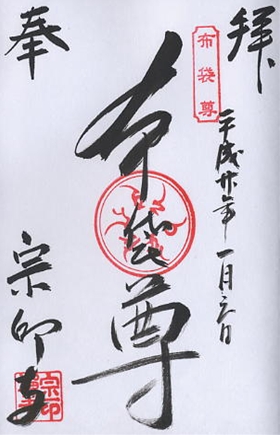 奉拝
布袋尊
平成廿年一月六日
布袋尊
宗印寺
宗印寺